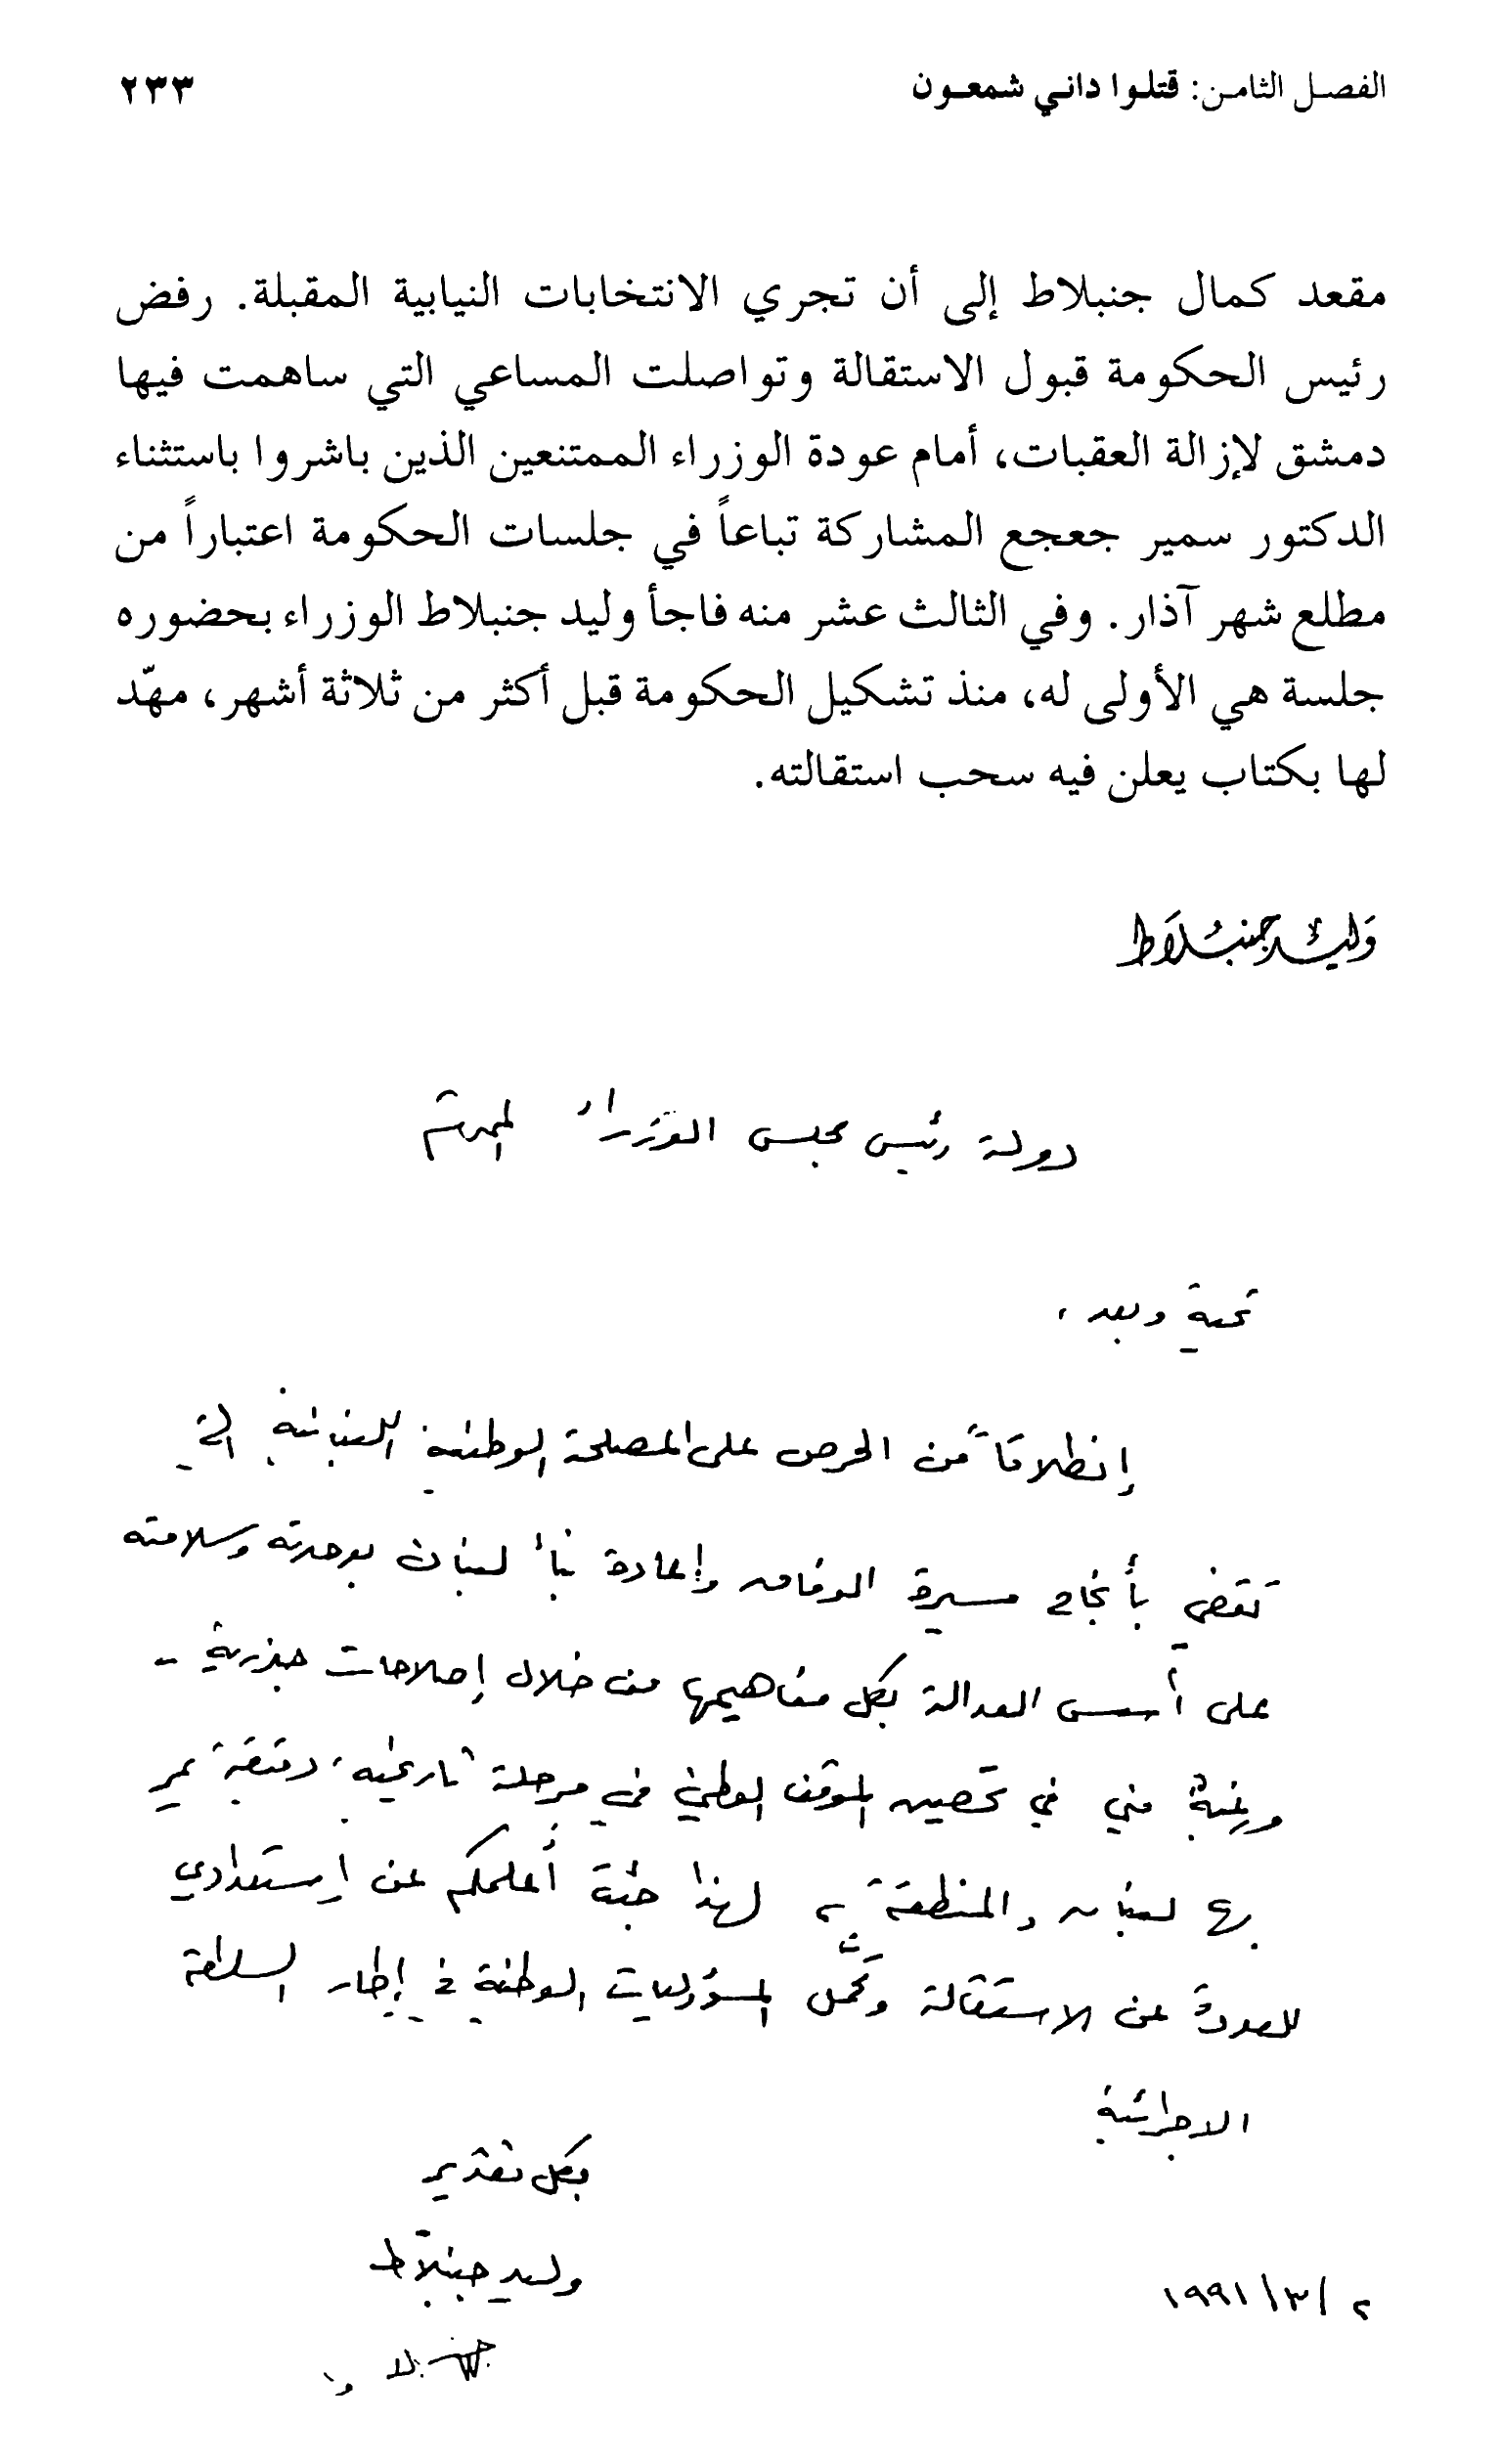 الفصل الثامن: قتلوا داني شمعون ٢٣٣
مقعد كمال جنبلاط إلى أن تجري الانتخابات النيابية المقبلة. رفض
رئيس الحكومة قبول الاستقالة وتواصلت المساعي التي ساهمت فيها
دمشق لإزالة العقبات، أمام عودة الوزراء الممتنعين الذين باشروا باستثناء
الدكتور سمير جعجع المشاركة تباعاً في جلسات الحكومة اعتباراً من
مطلع شهر آذار. وفي الثالث عشر منه فاجأ وليد جنبلاط الوزراء بحضوره
جلسة هي الأولى له، منذ تشكيل الحكومة قبل أكثر من ثلاثة أشهر، مهّد
لها بكتاب يعلن فيه سحب استقالته.
وَليد جنبُلَاط
دولة رئيس مجلس الوزراء المحترم
تحية وبعد،
إنطلاقاً من الحرص على المصلحة الوطنية اللبنانية التي
تقضي بأنجاح مسيرة الوفاق وإعادة بناء لبنان بوحدته وسلامته
على أسس العدالة بكل مفاهيمها من خلال إصلاحات جذرية -
ورغبة مني في تحصين الموقف الوطني في مرحلة تاريخية، دقيقة يمر
بها لبنان والمنطقة، لهذا جئت أعلمكم عن إستعدادي
للعودة عن الاستقالة وتحمّل المسؤوليات الوطنية في إطار السلطة
الاجرائية
بكل تقدير
وليد جنبلاط
٢/٣/١٩٩١